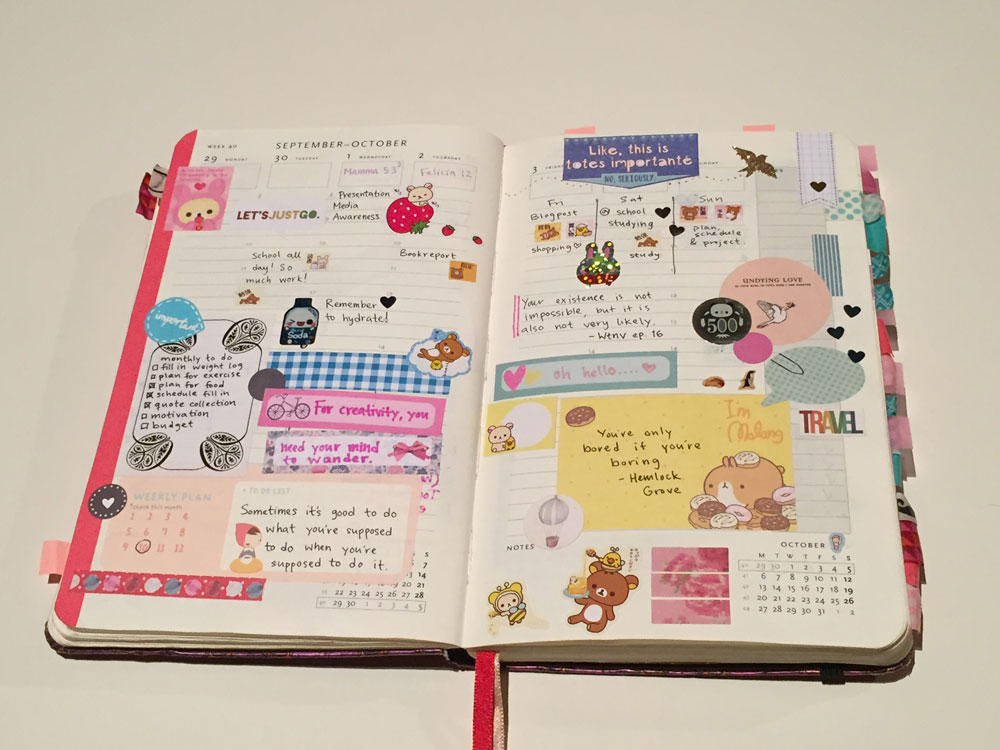 WEEK 40
SEPTEMBER–OCTOBER
29 MONDAY
30 TUESDAY
1 WEDNESDAY
2 THURSDAY
Mamma 53
Felicia 12
LET'S JUST GO.
Presentation
Media
Awareness
School all
day! So
much work!
Bookreport
Soda
Remember
to hydrate!
important
monthly to do
fill in weight log
plan for exercise
plan for food
schedule fill in
quote collection
motivation
budget
For creativity, you
need your mind
to wander.
WEEKLY PLAN
check this month
1 2 3 4
5 6 7 8
9 10 11 12
TO DO LIST
Sometimes it's good to do
what you're supposed
to do when you're
supposed to do it.
22 23 24 25 26 27 28
29 30 1 2 3 4 5
3
Like, this is
totes importante
NO, SERIOUSLY.
Fri
Blogpost
shopping
Sat
@ school
studying
study
Sun
plan,
schedule
& project.
Your existence is not
impossible, but it is
also not very likely.
- Wtnv ep. 16
500
UNDYING LOVE
oh hello....
TRAVEL
You're only
bored if you're
boring
- Hemlock
Grove
I'm
Molang
NOTES
OCTOBER
M T W T F S S
29 30 1 2 3 4 5
6 7 8 9 10 11 12
13 14 15 16 17 18 19
20 21 22 23 24 25 26
27 28 29 30 31 1 2